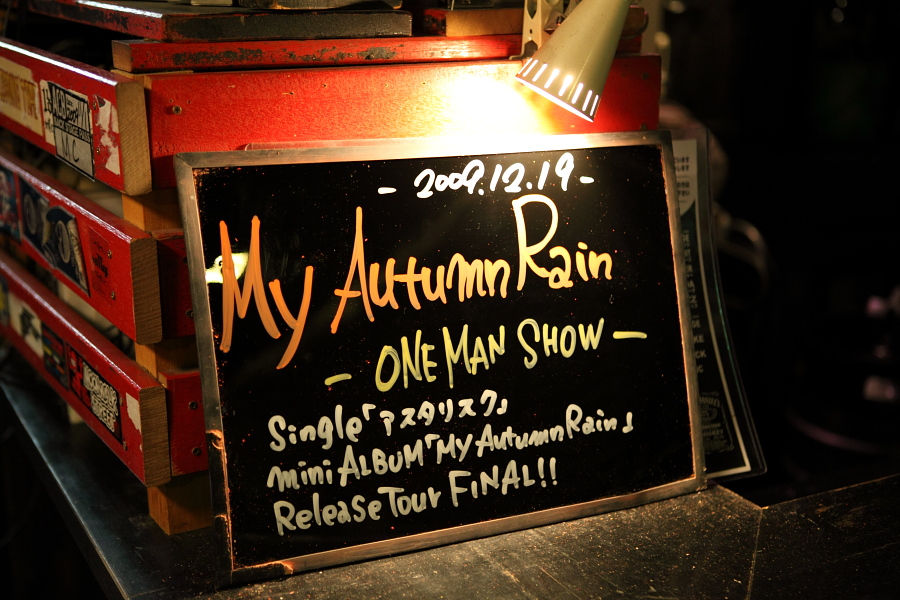 - 2009.12.19 -
My Autumn Rain
- ONE MAN SHOW -
Single「アスタリスク」
mini ALBUM「My Autumn Rain」
Release Tour FINAL!!
MC